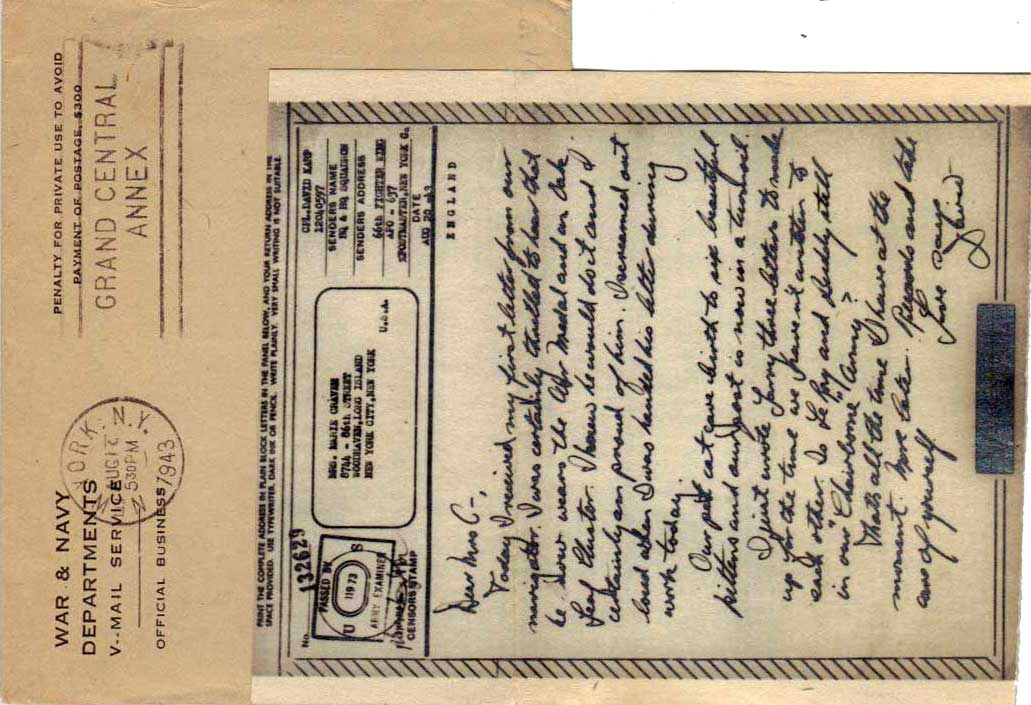 WAR & NAVY
DEPARTMENTS
V--MAIL SERVICE
OFFICIAL BUSINESS
PENALTY FOR PRIVATE USE TO AVOID
PAYMENT OF POSTAGE, $300
GRAND CENTRAL
ANNEX
YORK, N.Y.
AUG
530PM
1943
PRINT THE COMPLETE ADDRESS IN PLAIN BLOCK LETTERS IN THE PANEL BELOW, AND YOUR RETURN ADDRESS IN THE
SPACE PROVIDED. USE TYPEWRITER, DARK INK OR PENCIL. WRITE PLAINLY. VERY SMALL WRITING IS NOT SUITABLE.
No.
132629
PASSED BY
U S
11973
ARMY EXAMINER
CENSOR'S STAMP
MRS. MARIE
8744 - 86th STREET
WOODHAVEN, LONG ISLAND
NEW YORK CITY, NEW YORK
U.S.A.
CPL. DAVID KARP
SENDERS NAME
HQ & HQ SQUADRON
SENDERS ADDRESS
66th FIGHTER WING
APO - 637
POSTMASTER, NEW YORK
DATE
AUG 20
ENGLAND
Dear Mrs C-,
Today I received my first letter from our
navigator. I was certainly thrilled to hear that
he now wears the Air Medal and an Oak
Leaf Cluster. I knew he would do it and I
certainly am proud of him. I screamed out
loud when I was handed his letter during
work today.
Our cat gave birth to six beautiful
kittens and our post is now in a turmoil.
I just wrote Larry three letters to make
up for the time we haven't written to
each other. Is Le Roy and still
in our "Chairborne" Army?
That's all the time I have at the
moment. More later. Regards and take
care of yourself
Love says